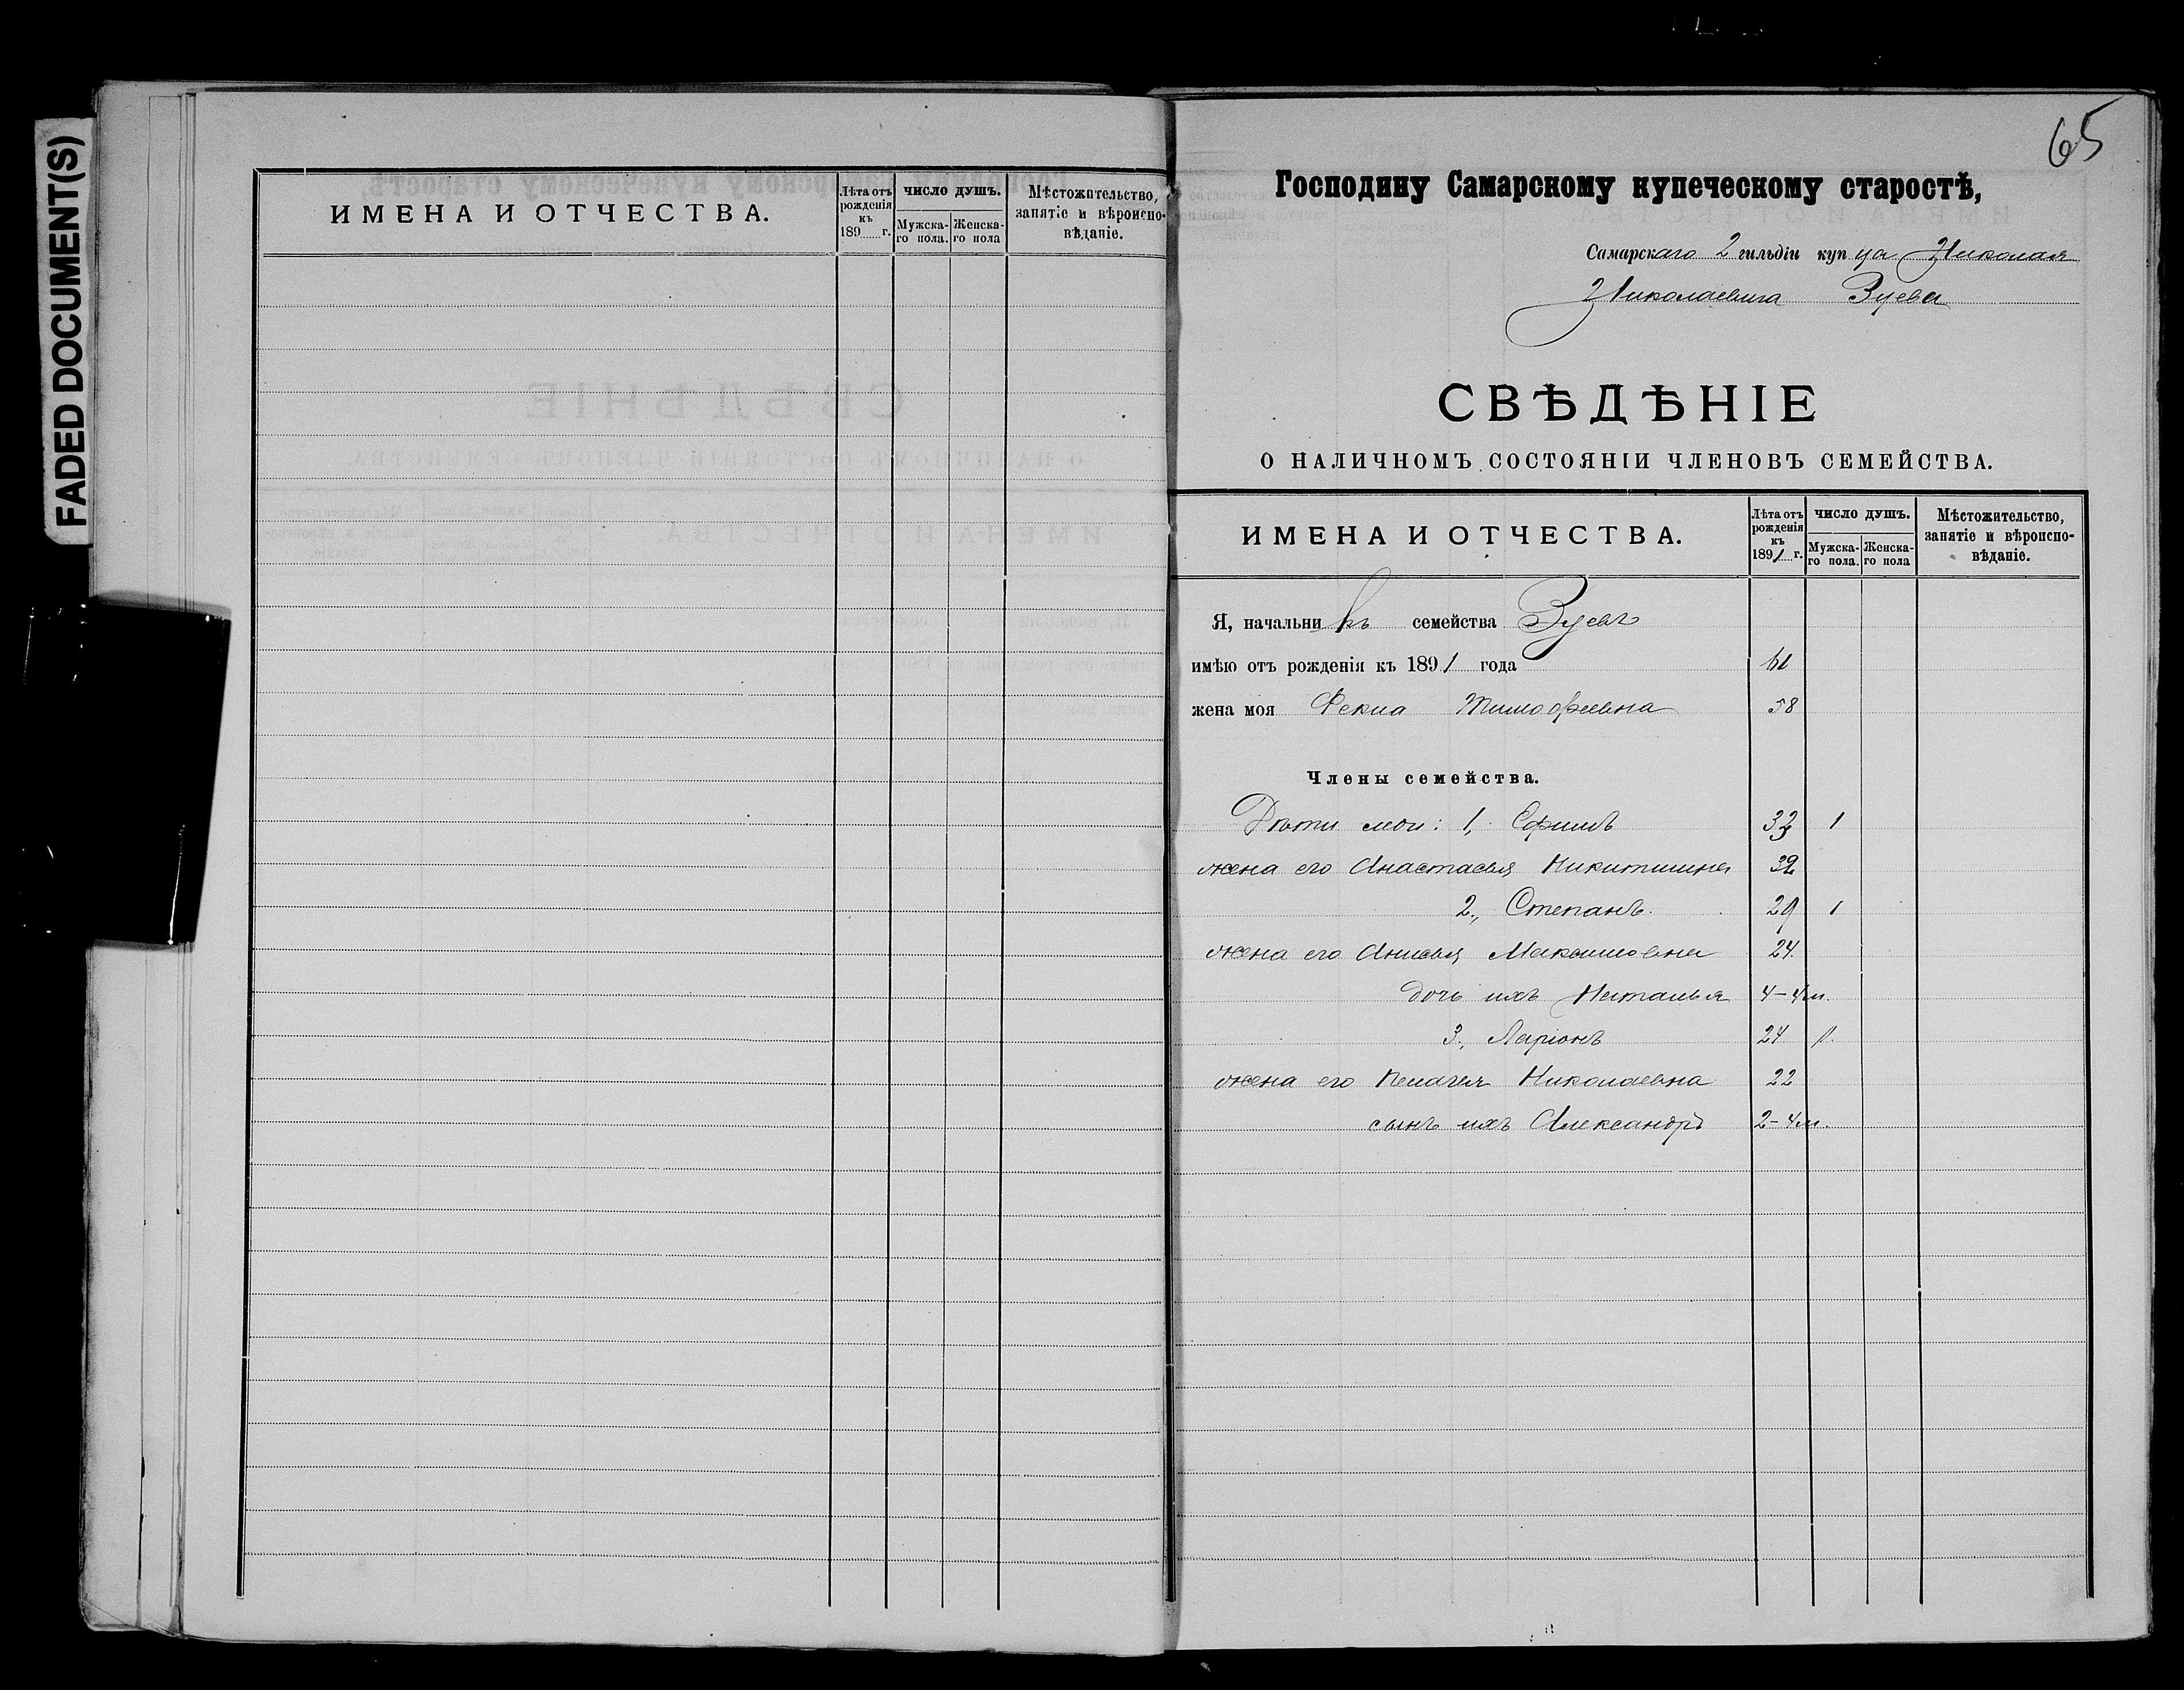 FADED DOCUMENT(S)
ИМЕНА И ОТЧЕСТВА.
Лѣта отъ рожденія къ 189 г.
число душъ.
Мужска-го пола.
Женска-го пола
Мѣстожительство, занятіе и вѣроиспо-вѣданіе.
65
Господину Самарскому купеческому старостѣ,
Самарскаго 2 гильдіи купца Николая
Николаевича Зуева
СВѢДѢНІЕ
О НАЛИЧНОМЪ СОСТОЯНІИ ЧЛЕНОВЪ СЕМЕЙСТВА.
ИМЕНА И ОТЧЕСТВА.
Лѣта отъ рожденія къ 1891 г.
число душъ.
Мужска-го пола.
Женска-го пола
Мѣстожительство, занятіе и вѣроиспо-вѣданіе.
Я, начальникъ семейства Зуевъ
имѣю отъ рожденія къ 1891 года 61
жена моя Фекла Тимофеевна 58
Члены семейства.
Дѣти мои: 1, Ефимъ 33 1
жена его Анастасья Никитишна 32
2., Степанъ 29 1
жена его Анисья Максимовна 24.
дочь ихъ Наталья 4-4м.
3., Ларіонъ 24 1.
жена его Пелагея Николаевна 22
сынъ ихъ Александръ 2-4м.